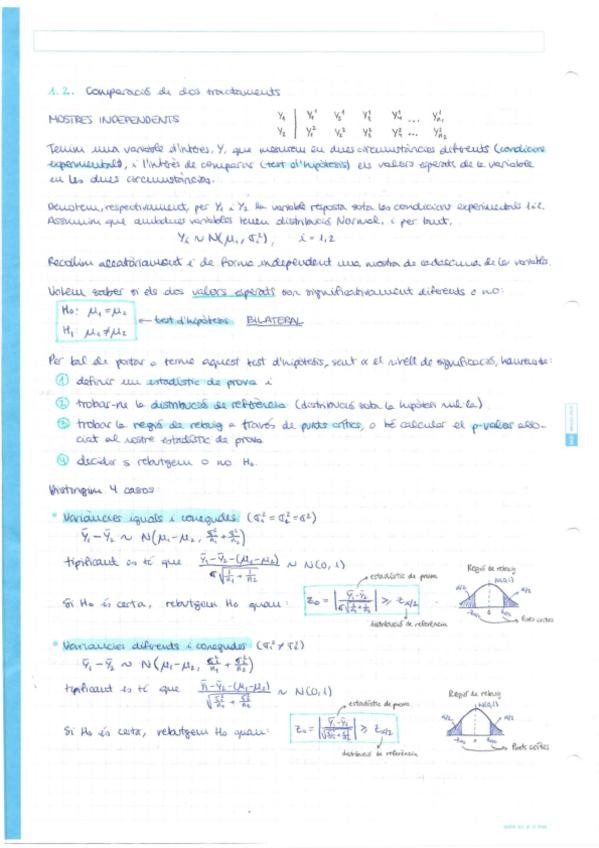 1.2. Comparació de dos tractaments
MOSTRES INDEPENDENTS
Y₁ | Y₁¹ Y₂¹ Y₃¹ Y₄¹ ... Yₙ₁¹
Y₂ | Y₁² Y₂² Y₃² Y₄² ... Yₙ₂²
Tenim una variable d'interès, Y, que mesurem en dues circumstàncies diferents (condicions
experimentals), i l'interès de comparar (test d'hipòtesis) els valors esperats de la variable
en les dues circumstàncies.
Denotem, respectivament, per Y₁ i Y₂ la variable resposta sota les condicions experimentals 1 i 2.
Assumim que ambdues variables tenen distribució Normal, i per tant,
Yᵢ ~ N(μᵢ, σᵢ²), i = 1,2
Recollim aleatòriament i de forma independent una mostra de cadascuna de les variables.
Volem saber si els dos valors esperats son significativament diferents o no:
H₀: μ₁ = μ₂
H₁: μ₁ ≠ μ₂
← test d'hipòtesis BILATERAL
Per tal de portar a terme aquest test d'hipòtesis, sent α el nivell de significació, haurem de:
① definir un estadístic de prova i
② trobar-ne la distribució de referència (distribució sota la hipòtesi nul·la)
③ trobar la regió de rebuig a través de punts crítics, o bé calcular el p-valor asso-
ciat al nostre estadístic de prova
④ decidir si rebutgem o no H₀.
Distingim 4 casos:
• Variàncies iguals i conegudes (σ₁² = σ₂² = σ²)
Ȳ₁ - Ȳ₂ ~ N(μ₁ - μ₂, σ²/n₁ + σ²/n₂)
tipificant es té que (Ȳ₁ - Ȳ₂ - (μ₁ - μ₂)) / (σ√(1/n₁ + 1/n₂)) ~ N(0,1)
Si H₀ és certa, rebutgem H₀ quan: z₀ = |(Ȳ₁ - Ȳ₂) / (σ√(1/n₁ + 1/n₂))| ≥ z_α/2
estadístic de prova
distribució de referència
Regió de rebuig
N(0,1)
α/2 α/2
-z_α/2 0 z_α/2
Punts crítics
• Variàncies diferents i conegudes (σ₁² ≠ σ₂²)
Ȳ₁ - Ȳ₂ ~ N(μ₁ - μ₂, σ₁²/n₁ + σ₂²/n₂)
tipificant es té que (Ȳ₁ - Ȳ₂ - (μ₁ - μ₂)) / √(σ₁²/n₁ + σ₂²/n₂) ~ N(0,1)
Si H₀ és certa, rebutgem H₀ quan: z₀ = |(Ȳ₁ - Ȳ₂) / √(σ₁²/n₁ + σ₂²/n₂)| ≥ z_α/2
estadístic de prova
distribució de referència
Regió de rebuig
N(0,1)
α/2 α/2
-z_α/2 0 z_α/2
Punts crítics